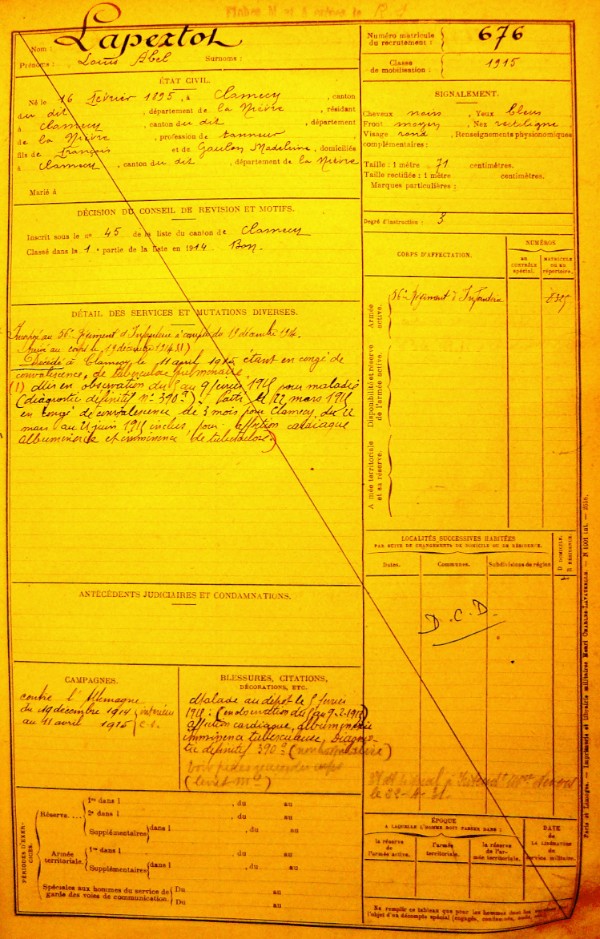 Nom : Lapertot
Prénoms : Louis Abel Surnoms :
Numéro matricule du recrutement : 676
Classe de mobilisation : 1915
ÉTAT CIVIL.
Né le 16 février 1895, à Clamecy, canton
du dit, département de la Nièvre, résidant
à Clamecy, canton du dit, département
de la Nièvre, profession de tanneur
fils de François et de Gaulon Madeleine, domiciliés
à Clamecy, canton du dit, département de la Nièvre
Marié à
SIGNALEMENT.
Cheveux noirs, Yeux bleus
Front moyen, Nez rectiligne
Visage rond, Renseignements physionomiques
complémentaires :
Taille : 1 mètre 71 centimètres.
Taille rectifiée : 1 mètre centimètres.
Marques particulières :
Degré d'instruction : 3
DÉCISION DU CONSEIL DE REVISION ET MOTIFS.
Inscrit sous le n° 45 de la liste du canton de Clamecy
Classé dans la 1e partie de la liste en 1914 Bon
DÉTAIL DES SERVICES ET MUTATIONS DIVERSES.
au 56e Régiment d'Infanterie à compter du 19 décembre 1914.
Arrivé au corps le 19 décembre 1914 (1)
Décédé à Clamecy le 11 avril 1915 étant en congé de
convalescence, de tuberculose pulmonaire.
(1) Mis en observation du 5 au 9 février 1915 pour maladie
(diagnostic définitif n° 390a) Parti le 12 mars 1915
en congé de convalescence de 3 mois pour Clamecy, du 12
mars au 11 juin 1915 inclus, pour affection cardiaque
albuminurie et imminence de tuberculose)
CORPS D'AFFECTATION.
NUMÉROS
AU CONTRÔLE spécial.
MATRICULE OU AU répertoire.
Armée active.
56e Régiment d'Infanterie
Disponibilité et réserve de l'armée active.
Armée territoriale et sa réserve.
LOCALITÉS SUCCESSIVES HABITÉES
PAR SUITE DE CHANGEMENTS DE DOMICILE OU DE RÉSIDENCE.
Dates. Communes. Subdivisions de région
D. DOMICILE.
R. RÉSIDENCE.
D.C.D.
ANTÉCÉDENTS JUDICIAIRES ET CONDAMNATIONS.
CAMPAGNES.
contre l'Allemagne
du 19 décembre 1914
au 11 avril 1915
intérieur
BLESSURES, CITATIONS,
DÉCORATIONS, ETC.
Malade au dépôt le 5 février
1915 : (en observation du 5 au 9.2.1915)
affection cardiaque, albuminurie
imminence tuberculeuse, Diagnos-
tic définitif 390a
le 22-8-31.
PÉRIODES D'EXERCICES.
Réserve....
1re dans l , du au
2e dans l , du au
Supplémentaires dans l , du au
Armée territoriale.
1re dans l , du au
Supplémentaires dans l , du au
Spéciales aux hommes du service de garde des voies de communication.
Du au
Du au
ÉPOQUE
A LAQUELLE L'HOMME DOIT PASSER DANS :
la réserve de l'armée active.
l'armée territoriale.
la réserve de l'armée territoriale.
DATE
DE LA LIBÉRATION du service militaire.